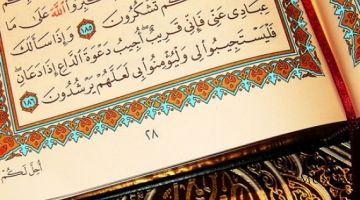 الله
تَشْكُرُونَ ١٨٥ وَإِذَا سَأَلَكَ
عِبَادِى عَنِّى فَإِنِّى قَرِيبٌ أُجِيبُ دَعْوَةَ ٱلدَّاعِ إِذَا دَعَانِ
فَلْيَسْتَجِيبُوا۟ لِى وَلْيُؤْمِنُوا۟ بِى لَعَلَّهُمْ يَرْشُدُونَ ١٨٦
٢٨
أُحِلَّ لَكُمْ